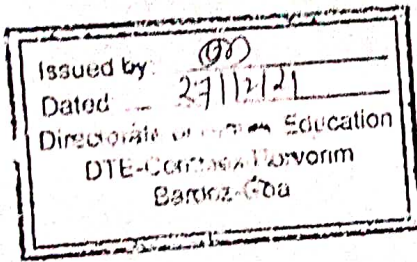 Issued by:
Dated 27/12/21
Directorate of Education
DTE- Porvorim
Bardez-Goa